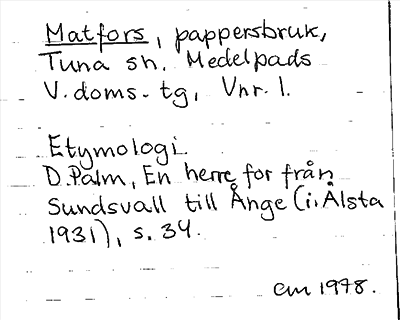 Matfors, pappersbruk,
Tuna sn. Medelpads
V. doms. tg, Vnr. 1.
Etymologi.
D. Palm, En herre for från
Sundsvall till Ånge (i: Ålsta
1931), s. 34.
cm 1978.